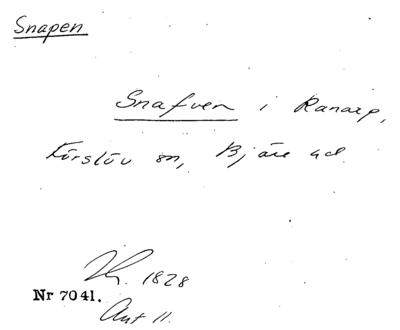 Snapen
Snafven i Ranarp,
Förslöv sn, Bjäre hd
1828
Nr 7041.
Akt 11.